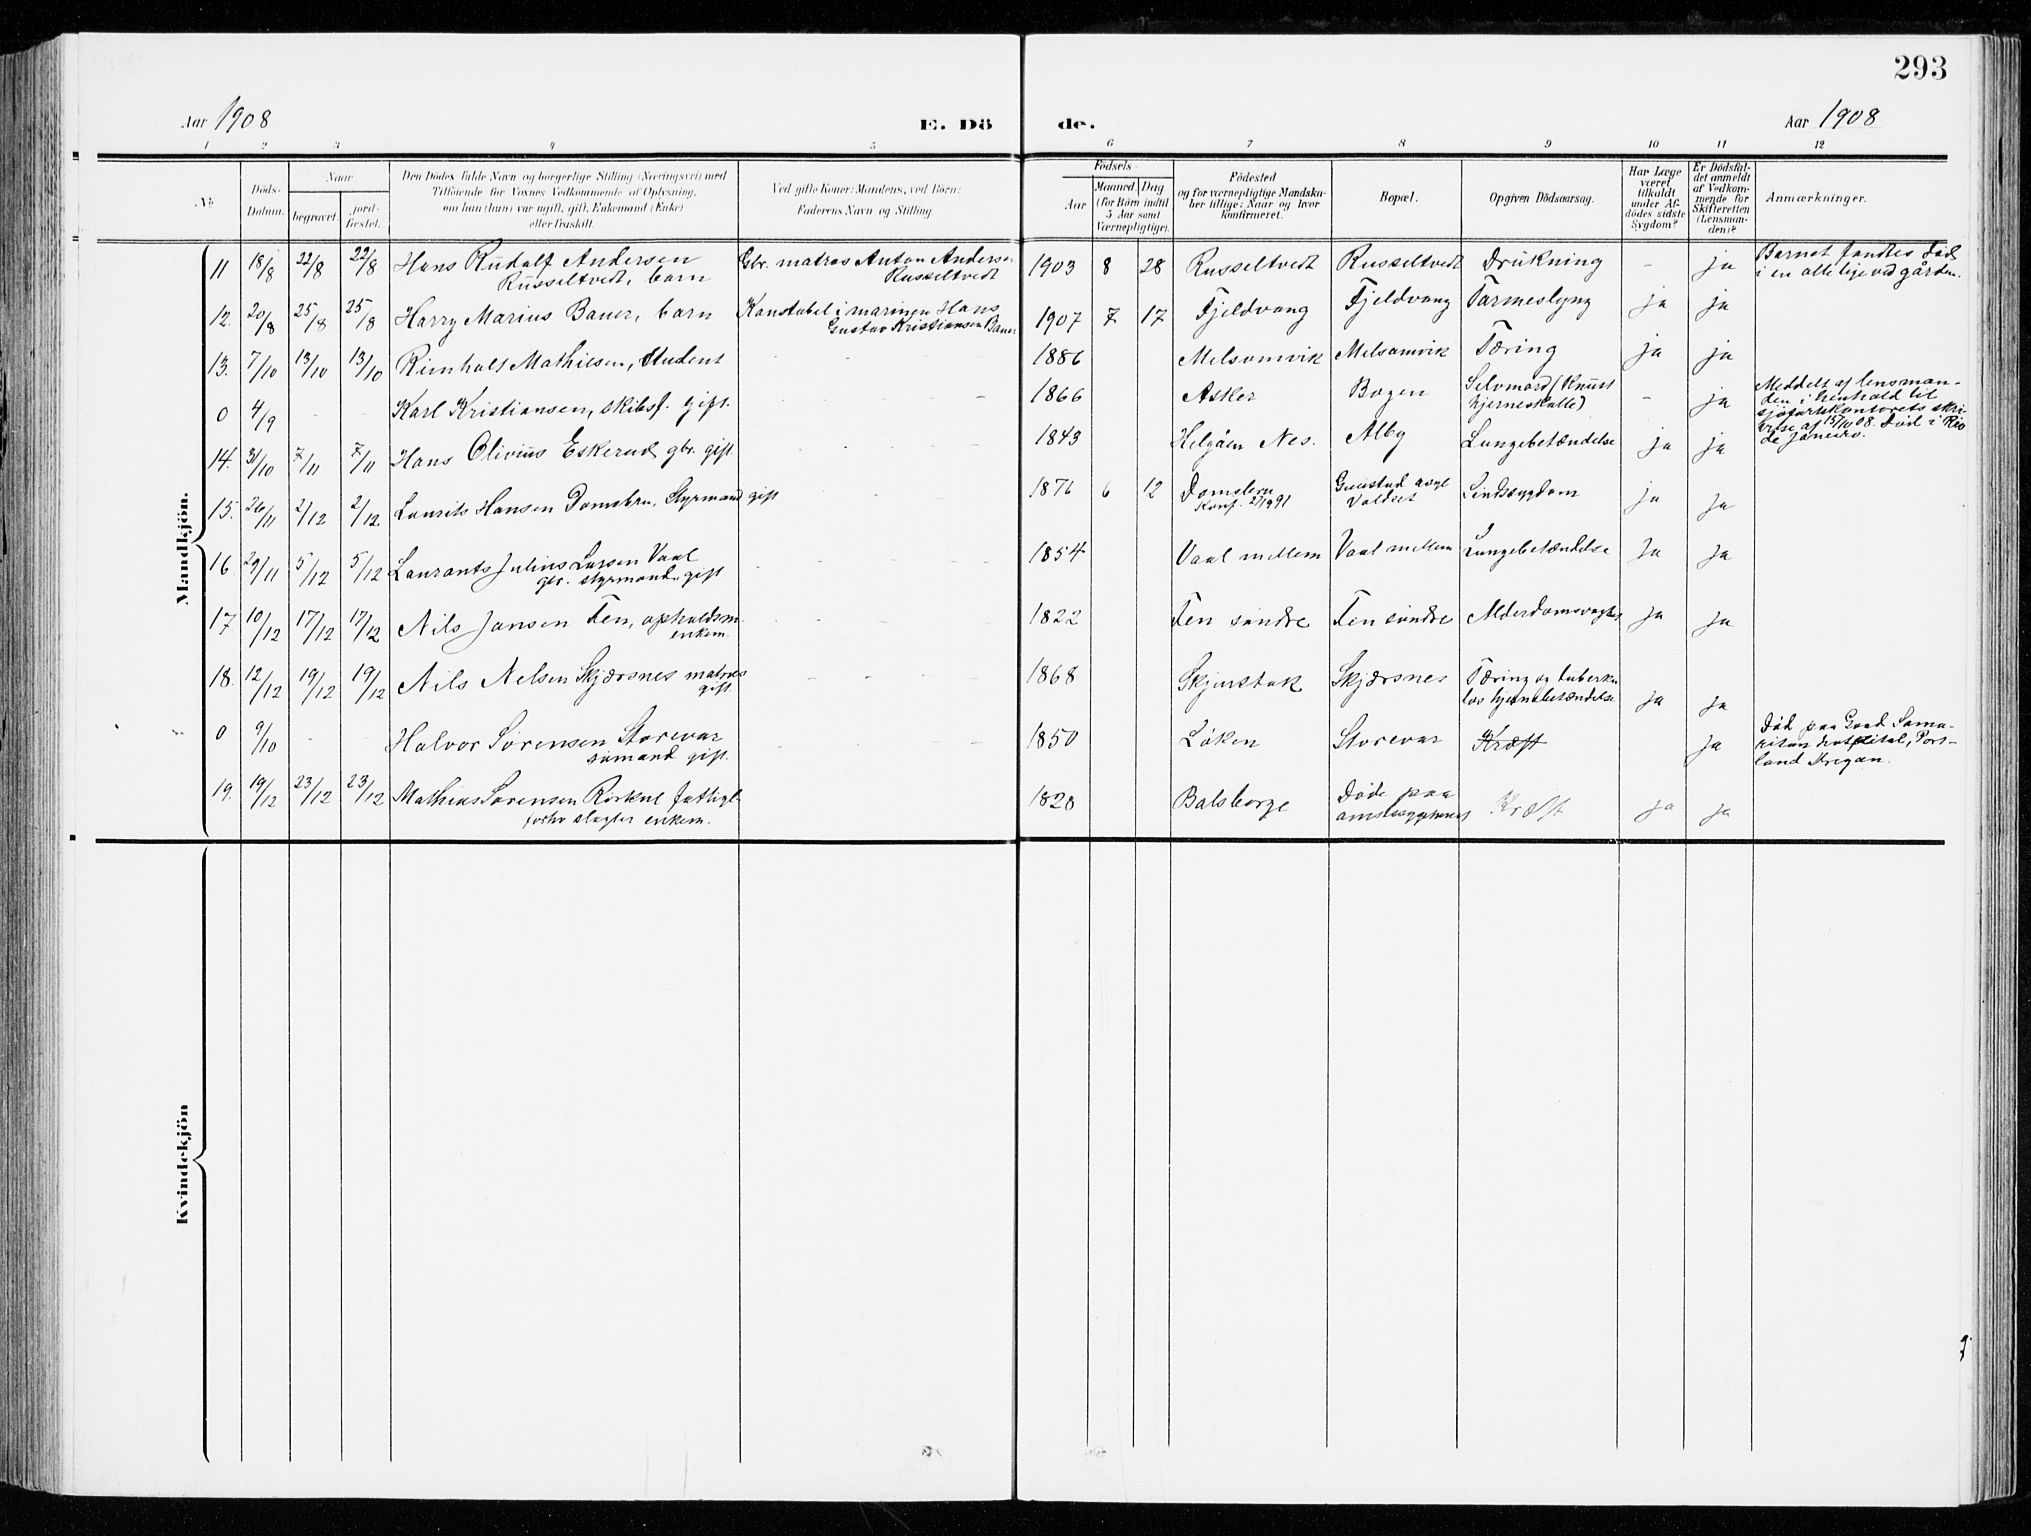 293
Aar 1908
E. Dö de.
Aar 1908
1 2 3 4 5 6 7 8 9 10 11 12
No
Döds-Datum.
Naar
begravet.
jord-fæstet.
Den Dödes fulde Navn og borgerlige Stilling (Næringsvei) med
Tilföiende for Voxnes Vedkommende af Oplysning,
om han (hun) var ugift, gift, Enkemand (Enke)
eller fraskilt.
Ved gifte Koner: Mandens, ved Börn:
Faderens Navn og Stilling.
Födsels-
Aar
Maaned. Dag
(for Börn indtil
5 Aar samt
Værnepligtige).
Födested
og for værnepligtige Mandska-
ber tillige: Naar og hvor
konfirmeret.
Bopæl.
Opgiven Dödsaarsag.
Har Læge
været
tilkaldt
under Af-
dödes sidste
Sygdom?
Er Dödsfal-
det anmeldt
af Vedkom-
mende for
Skifteretten
(Lensman-
den)?
Anmærkninger.
Mandkjön.
11 18/8 22/8 22/8 Hans Rudolf Andersen
Russeltvedt, barn
Gbr. matros Anton Andersen
Russeltvedt
1903 8 28 Russeltvedt Russeltvedt Drukning - ja
Barnet fandtes död
i en ved gården.
12. 20/8 25/8 25/8 Harry Marius Bauer, barn
Konstabel i marinen Hans
Gustav Kristiansen Bauer
1907 7 17 Fjeldvang Fjeldvang Tarmeslyng ja ja
13. 7/10 13/10 13/10 Reinholt Mathiesen, Student
1886 Melsomvik Melsomvik Tæring ja ja
0 4/9 - - Karl Kristiansen, skibsf. gift.
1866 Asker Bogen Selvmord (Knust
hjerneskalle) - ja
Meddelt af lensman-
den i henhold til
sjöfartskontorets skri-
velse af 15/10 08. Död i Rio
de Janeiro.
14. 31/10 7/11 7/11 Hans Olivius Eskerud gbr. gift
1843 Helgåen Nes. Alby Lungebetændelse ja ja
15. 26/11 2/12 2/12 Laurits Hansen Domsbru, Styrmand gift
1876 6 12 Domsbru
Konf. 27/9 91
Gaustad asyl
Sindssygdom ja ja
16 29/11 5/12 5/12 Laurants Julius Larsen Vaal
gbr. styrmand. gift
1854 Vaal mellem Vaal mellem Lungebetændelse Ja ja
17 10/12 17/12 17/12 Nils Jansen Fen, opholdsm.
enkem.
1822 Fen söndre Fen söndre Alderdomsvaghed ja ja
18. 12/12 19/12 19/12 Nils Nelsen Skjærsnes matros
gift.
1868 Skjerstak Skjærsnes Tæring og tuberku
lös hjernebetændelse ja ja
0 9/10 - - Halvor Sörensen Storevar
sömand gift.
1850 Löken Storevar Kræft ja
Död paa Good Sama-
ritan hospital, Port-
land Oregan.
19. 19/12 23/12 23/12 Mathias Sörensen Rörkul fattigl.
forhv slagter enkem.
1820 Balsberge Döde paa
amtssygehuset Kræft ja ja
Kvindekjön